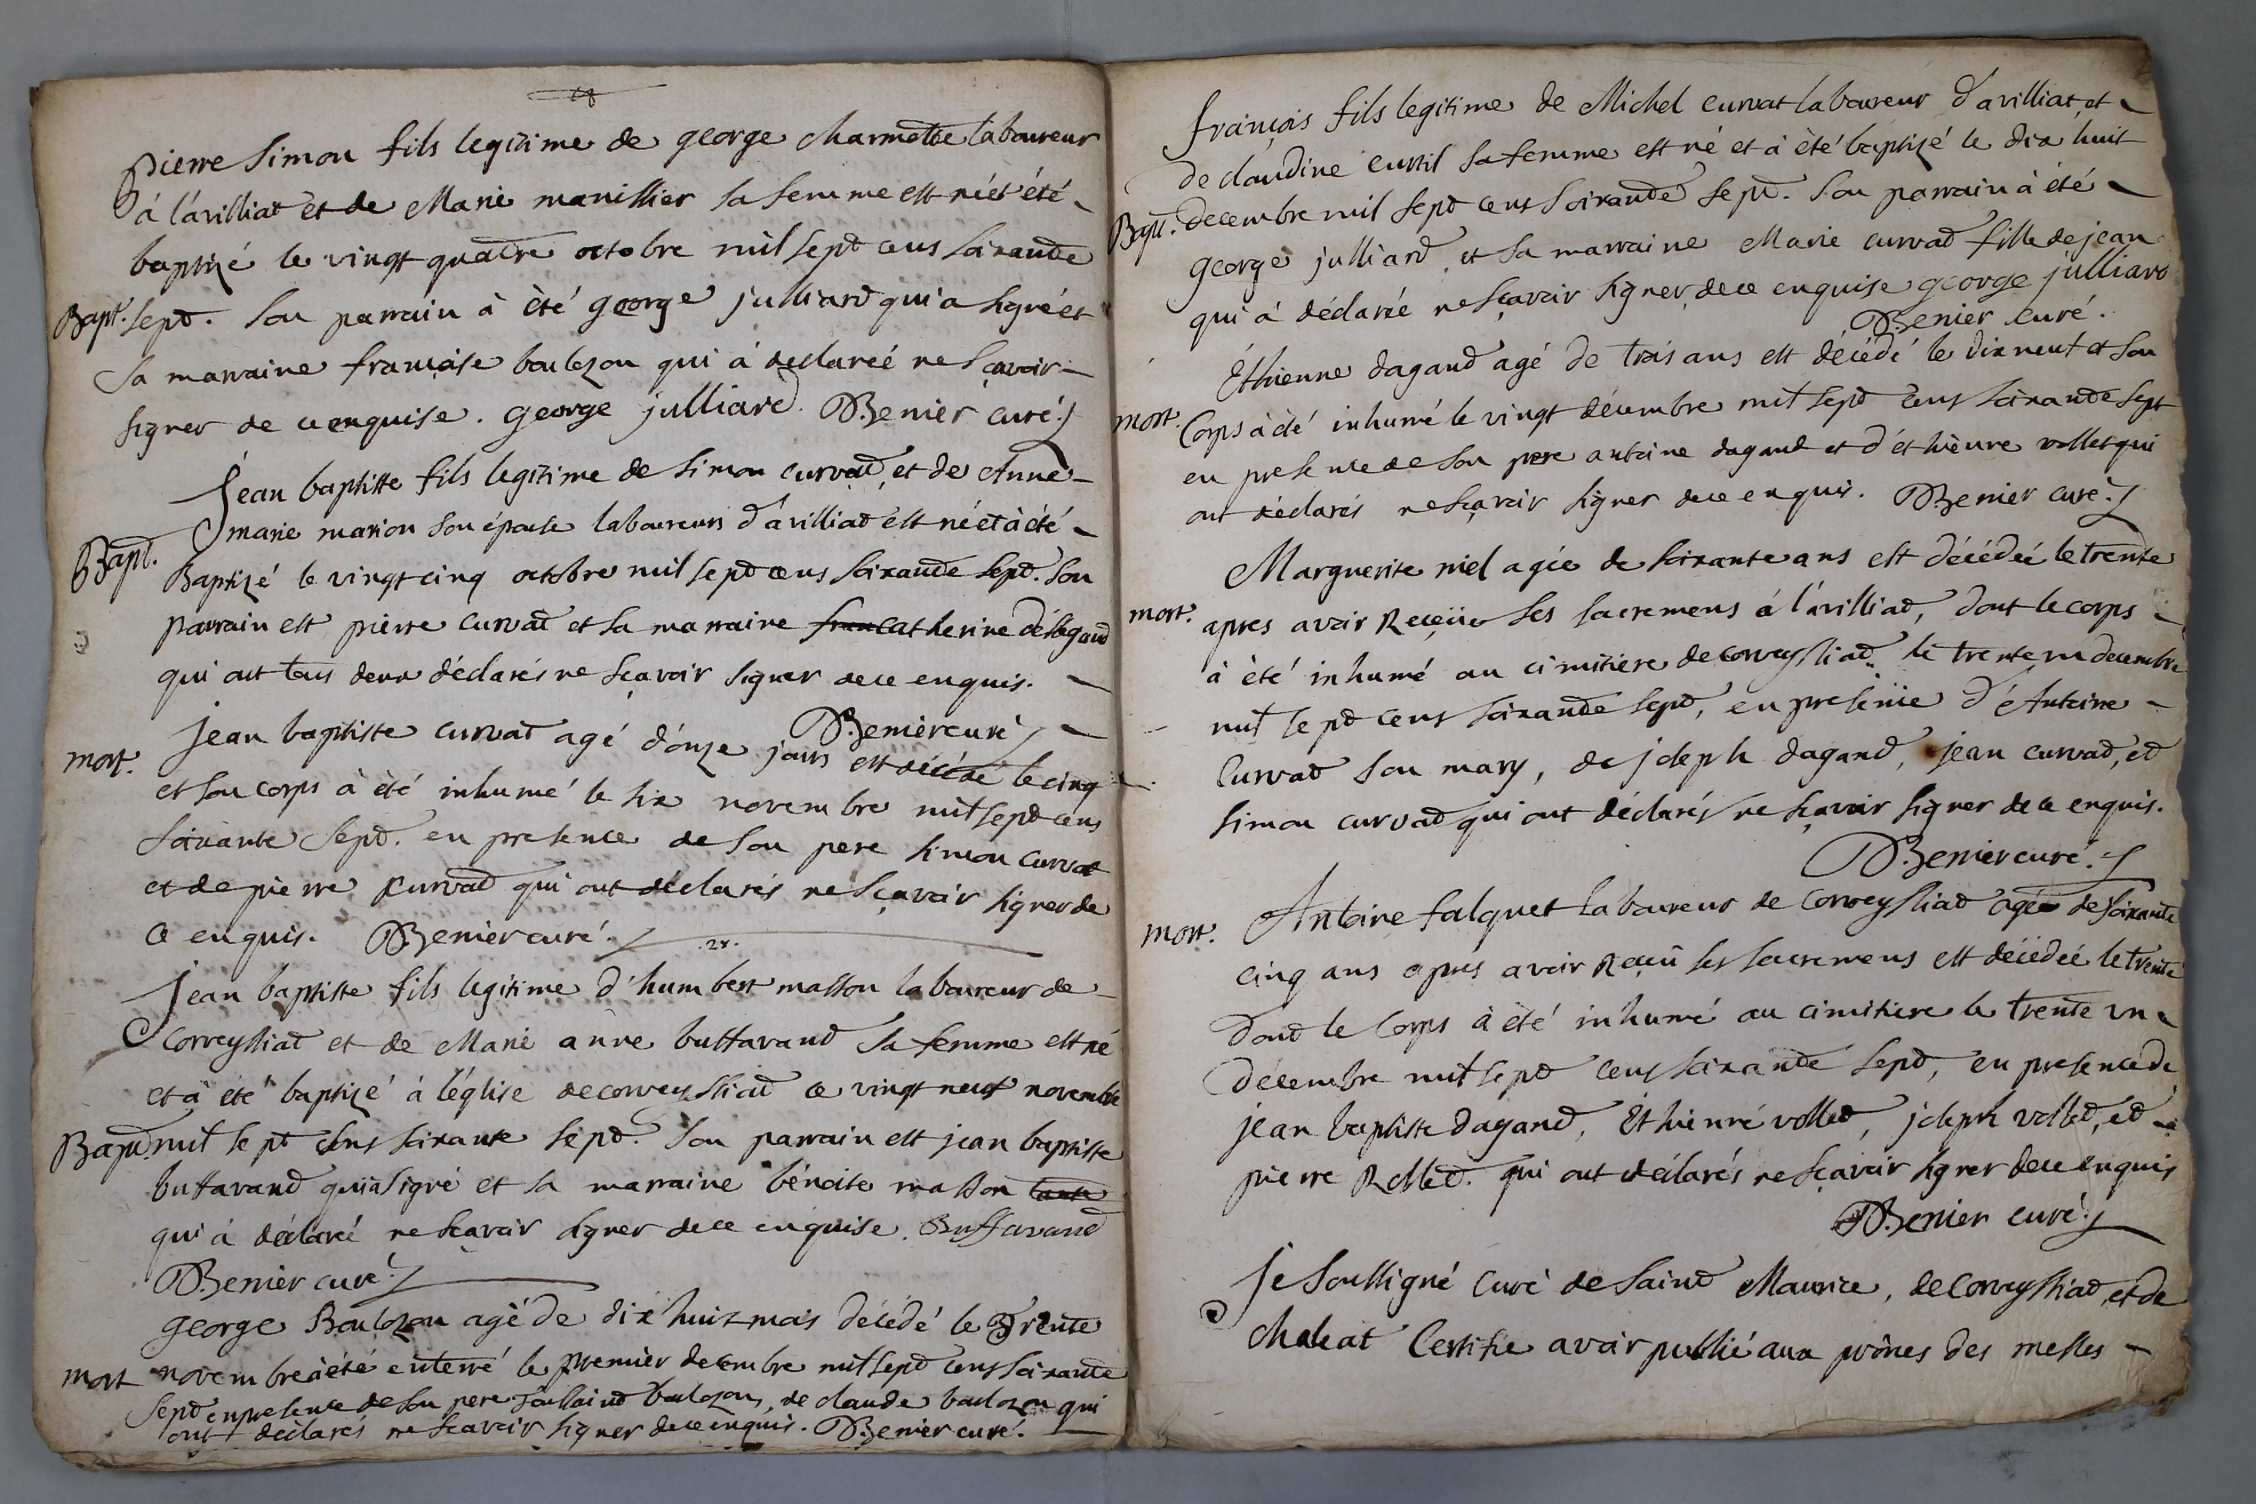 Pierre Simon fils legitime de george charmette laboureur
á l'ávilliat et de Marie manillier sa femme est né et été
baptizé le vingt quattre octobre mil sept cens soixante
Bapt. sept. son parrain à èté george julliard qui a signé et
sa marraine françoise boulozon qui á declareé ne sçavoir
signer de ce enquise. george julliard. Benier curé.
Jean baptiste fils legitime de simon curvat, et de Anne
marie marion son épouse laboureurs d'ávilliat est né et à été
Bapt. Baptizé le vingt cinq octobre mil sept cens soixante sept. son
parrain est pierre curvat et sa marraine fran catherine désegaud
qui ont tous deux déclarés ne sçavoir signer de ce enquis.
Benier curé
mort. jean baptiste curvat agé d'onze jours est décédé le cinq
et son corps à été inhumé le six novembre mil sept cens
soixante sept. en presence de son pere simon curvat
et de pierre curvat qui ont déclarés ne sçavoir signer de
ce enquis. Benier curé.
.28.
Jean baptiste fils legitime d'humbert masson laboureur de
Corveyssiat et de Marie anne buffavand sa femme est né
et à été baptizé á l'église de corveyssiat ce vingt neuf novembre
Bapt. mil sept cens soixante sept. son parrain est jean baptiste
buffavand qui a signé et sa marraine bénoite masson tante
qui á déclaré ne scavoir signer de ce enquise. Buffavand
Benier curé
george Boulozon agé de dix huit mois décédé le trente
mort novembre à été enterré le premier decembre mil sept cens soixante
sept en presence de son pere Toussaint boulozon, de claude boulozon qui
ont déclarés ne scavoir signer de ce enquis. Benier curé.
françois fils legitime de Michel curvat laboureur d'avilliat et
de claudine curtil sa femme est né et à été baptizé le dix huit
Bapt. decembre mil sept cens soixante sept. son parrain à été
george julliard, et sa marraine Marie curvat fille de jean
qui á déclarée ne sçavoir signer de ce enquise george julliard
Benier curé.
Éthienne dagand agé de trois ans est décédé le dix neuf et son
mort. Corps à été inhumé le vingt décembre mil sept cens soixante sept
en presence de son pere antoine dagand et d'éthiènne vollet qui
ont déclarés ne sçavoir signer de ce enquis. Benier curé.
Marguerite niel agée de soixante ans est décédeé le trente
mort. apres avoir Receüe ses sacremens á l'ávilliat, dont le corps
à été inhumé au cimitiere de corveyssiat le trente un decembre
mil sept cens soixante sept, en presence d'Antoine
Curvat son mary, de joseph dagand, jean curvat, et
simon curvat qui ont déclarés ne sçavoir signer de ce enquis.
Benier curé.
mort. Antoine falquet laboureur de Corveyssiat agé de soixante
cinq ans apres avoir Reçeu ses sacremens est décédeé le trente
dont le Corps à été inhumé au cimitiere le trente un
décembre mil sept cens soixante sept, en presence de
jean baptiste dagand, Ethienne vollet, joseph vollet, et
pierre Rollet. qui ont déclarés ne sçavoir signer de ce enquis
Benier curé
Je soussigné Curé de saint Maurice, de Corveyssiat, et de
Chaleat Certifie avoir publié aux prônes des messes